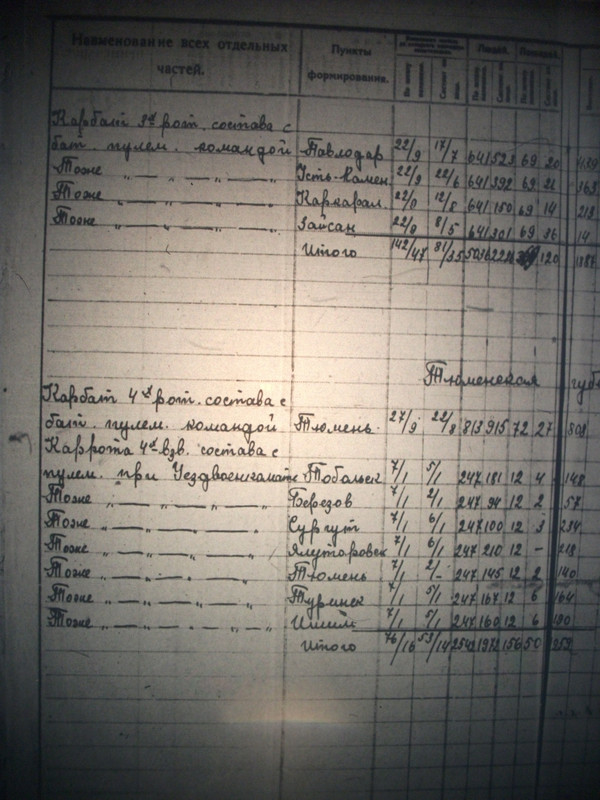 Наименование всех отдельных частей.
Пункты формирования.
Людей. Лошадей.
Карбат 3х рот. состава с
бат. пулем. командой Павлодар 22/9 17/7 641 523 69 20
Тоже Усть-камен 22/9 22/6 641 392 69 21
Тоже Каркарал. 12/8 641 150 69 14
Тоже Зайсан 8/5 641 301 69 36
Итого 142/47 81/35 120
Тюменская губ
Карбат 4х рот. состава с
бат. пулем. командой Тюмень. 27/9 22/8 813 915 72 27 808
Каррота 4х взв. состава с
пулем. при Уездвоенкомате Тобольск 7/1 5/1 247 181 12 4 148
Тоже Березов 7/1 2/1 247 94 12 2 57
Тоже Сургут 7/1 6/1 247 100 12 3 234
Тоже Ялуторовск 7/1 6/1 247 210 12 - 218
Тоже Тюмень 7/1 2/- 247 145 12 2 140
Тоже Туринск 7/1 5/1 247 167 12 6 164
Тоже Ишим 7/1 5/1 247 160 12 6 190
Итого 76/16 53/14 2542 1972 156 50